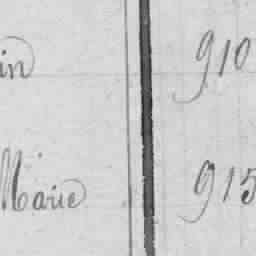 in 910
Marie 915